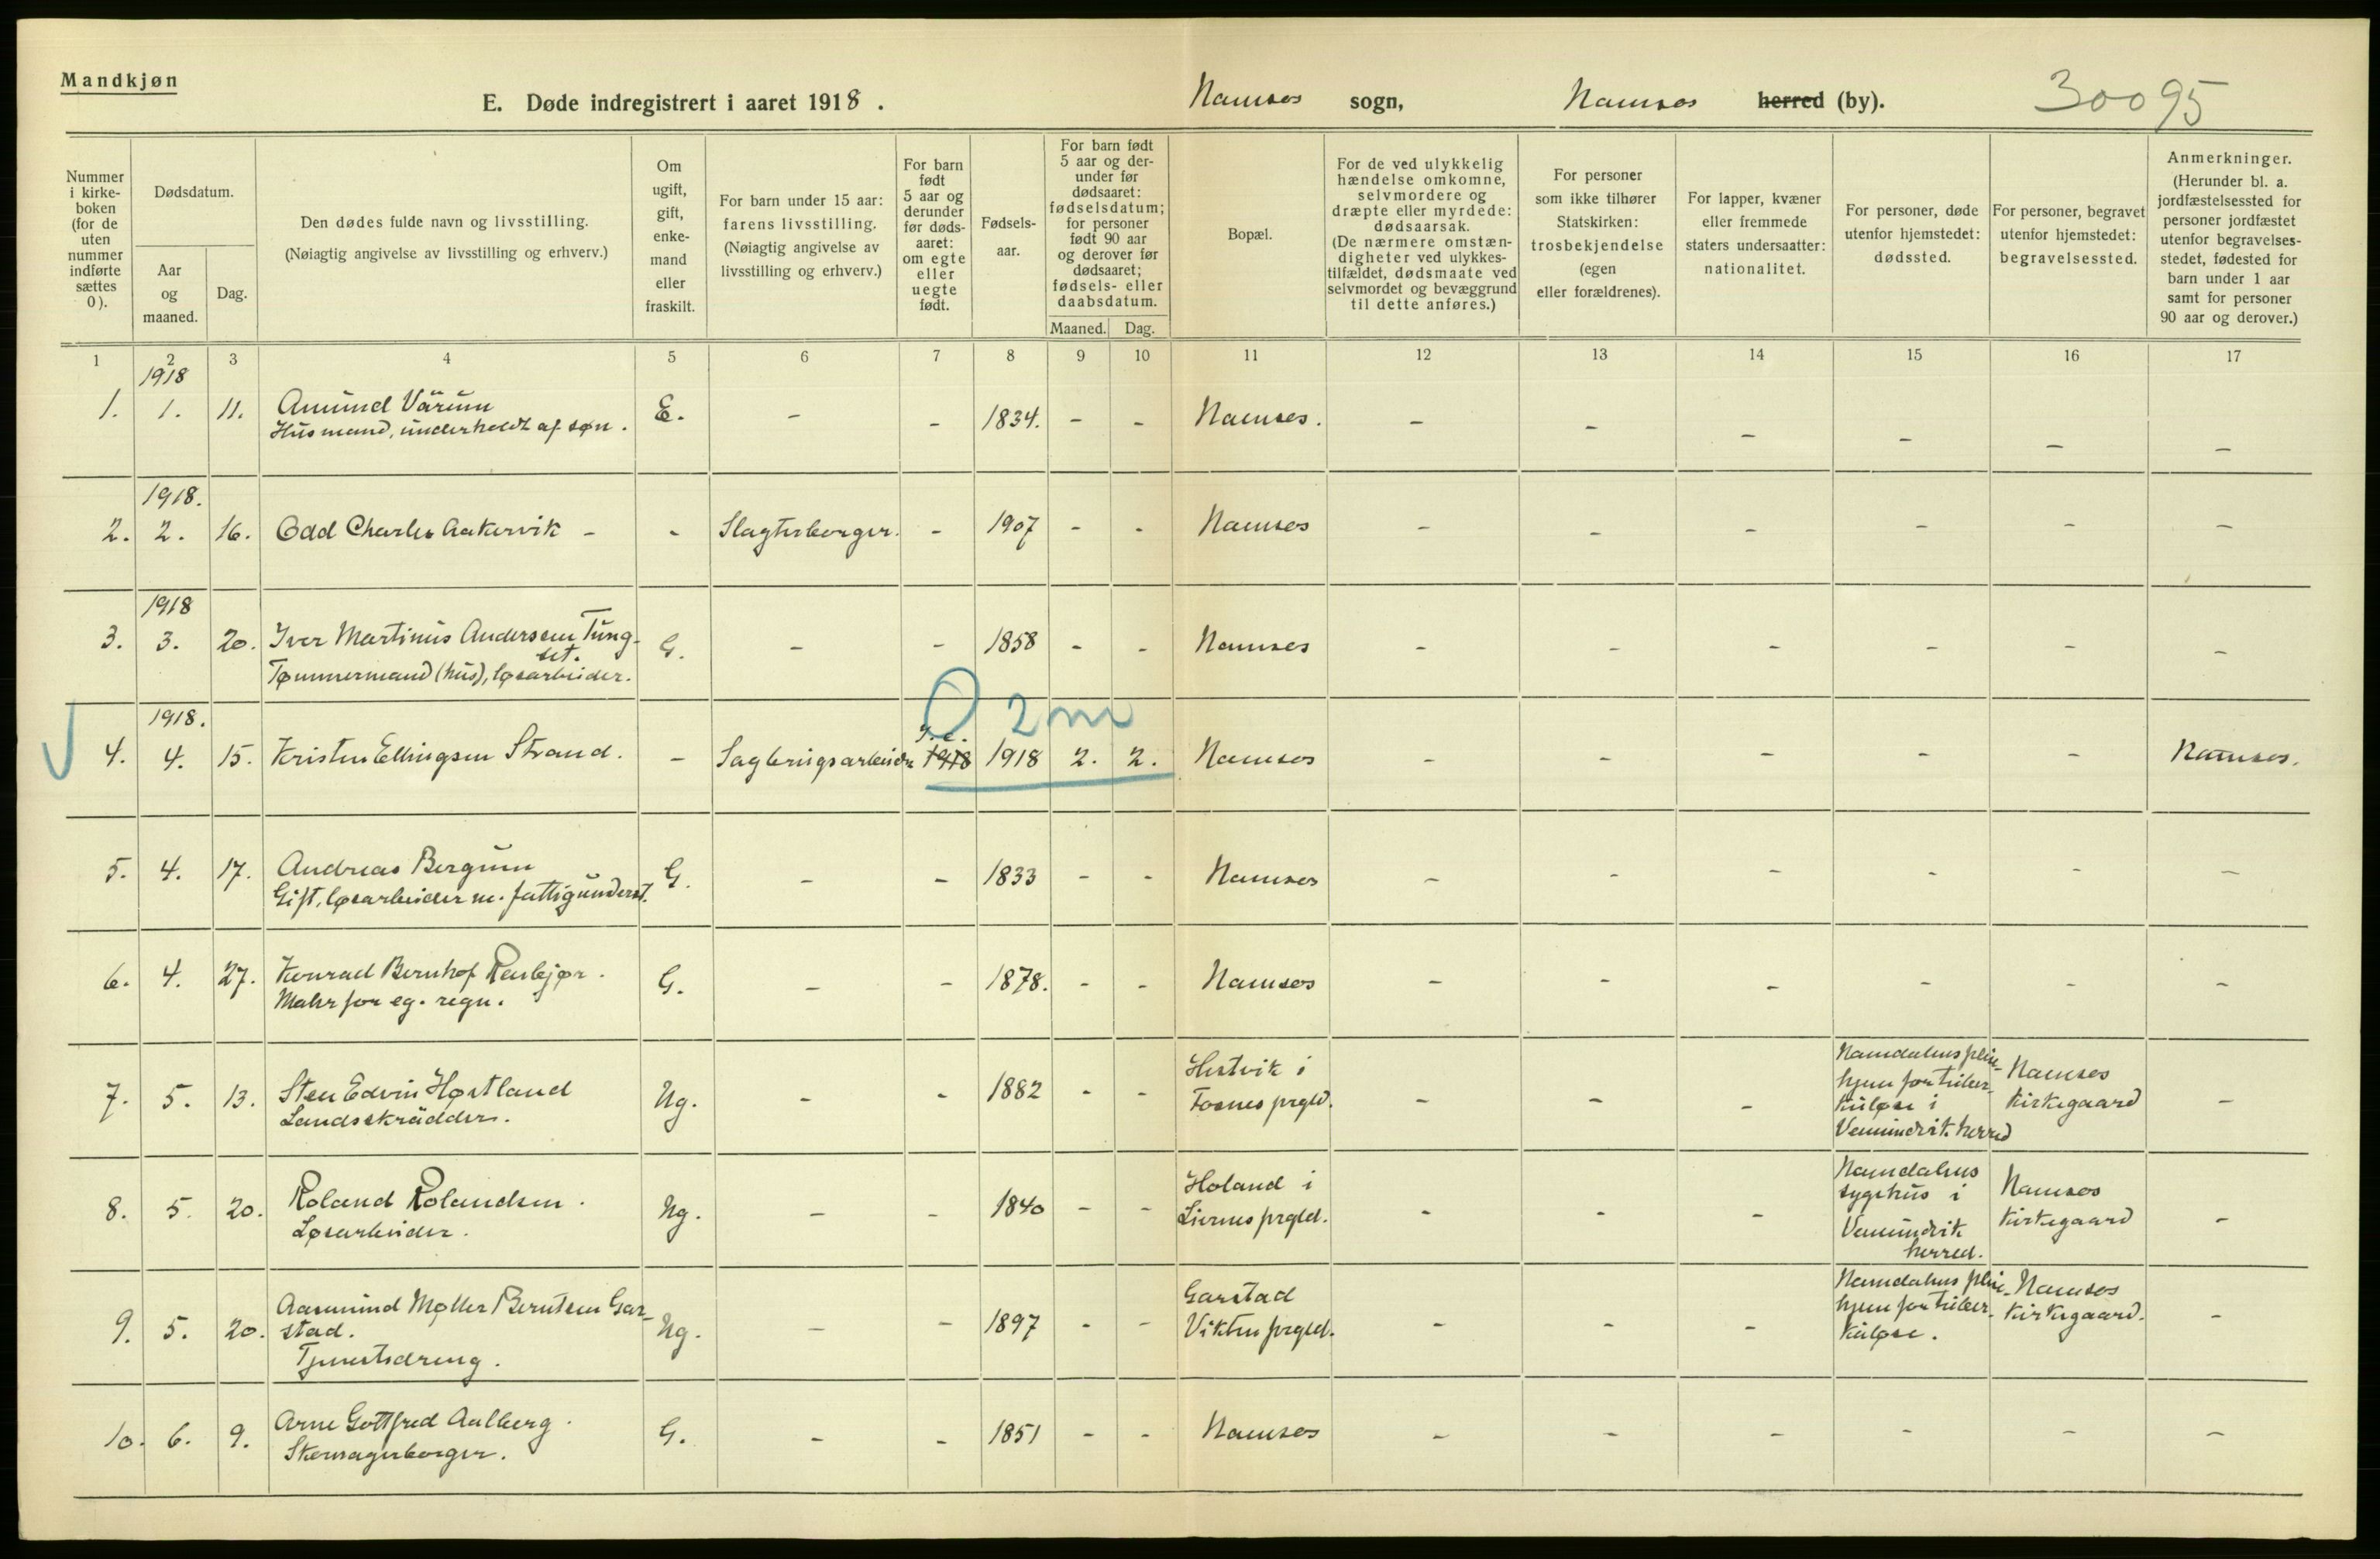 Mandkjøn
E. Døde indregistrert i aaret 1918.
Namsos sogn, Namsos herred (by). 30095
Nummer i kirke-boken (for de uten nummer indførte sættes 0).
Dødsdatum.
Aar og maaned.
Dag.
Den dødes fulde navn og livsstilling.
(Nøiagtig angivelse av livsstilling og erhverv.)
Om ugift, gift, enke-mand eller fraskilt.
For barn under 15 aar: farens livsstilling. (Nøiagtig angivelse av livsstilling og erhverv.)
For barn født 5 aar og derunder før døds-aaret: om egte eller uegte født.
Fødsels-aar.
For barn født 5 aar og der-under før dødsaaret: fødselsdatum; for personer født 90 aar og derover før dødsaaret; fødsels- eller daabsdatum.
Maaned. Dag.
Bopæl.
For de ved ulykkelig hændelse omkomne, selvmordere og dræpte eller myrdede: dødsaarsak. (De nærmere omstæn-digheter ved ulykkes-tilfældet, dødsmaate ved selvmordet og bevæggrund til dette anføres.)
For personer som ikke tilhører Statskirken: trosbekjendelse (egen eller forældrenes).
For lapper, kvæner eller fremmede staters undersaatter: nationalitet.
For personer, døde utenfor hjemstedet: dødssted.
For personer, begravet utenfor hjemstedet: begravelsessted.
Anmerkninger. (Herunder bl. a. jordfæstelsessted for personer jordfæstet utenfor begravelses-stedet, fødested for barn under 1 aar samt for personer 90 aar og derover.)
1 2 3 4 5 6 7 8 9 10 11 12 13 14 15 16 17
1918
1. 1. 11. Amund Värum E. - - 1834. - - Namsos. - - - - - -
Husmand, underholdt af søn.
1918.
2. 2. 16. Odd Charles Aakervik - - Slagterborger. - 1907 - - Namsos - - - - - -
1918
3. 3. 20. Iver Martinus Andersen Tung- G. - - 1858 - - Namsos - - - - - -
set.
Tømmermand (hus), løsarbeider.
1918. 2 m
4. 4. 15. Kristen Ellingsen Strand. - Sagbrugsarbeider 1918 1918 2. 2. Namsos - - - - - Namsos.
5. 4. 17. Andreas Bergum G. - - 1833 - - Namsos - - - - - -
Gift, løsarbeider m. fattigunderst.
6. 4. 27. Konrad Bernhof Renbjør. G. - - 1878. - - Namsos - - - - - -
Maler for eg. regn.
7. 5. 13. Sten Edvin Høstland Ug. - - 1882 - - Hestvik i Fosnes prgld. - - - Namdalens pleie-hjem for tuber-kuløse i Vemundvik herred Namsos Kirkegaard -
Landsskrädder.
8. 5. 20. Roland Rolandsen. Ug. - - 1840 - - Holand i Liernes prgld. - - - Namdalens sygehus i Vemundvik herred. Namsos Kirkegaard -
Løsarbeider.
9. 5. 20. Aasmund Møller Berntsen Gar- Ug. - - 1897 - - Garstad Vikten prgld. - - - Namdalens pleie-hjem for tuber-kuløse. Namsos Kirkegaard. -
stad.
Tjenestedreng.
10. 6. 9. Arne Gottfred Aalberg. G. - - 1851 - - Namsos - - - - - -
Skomagerborger.